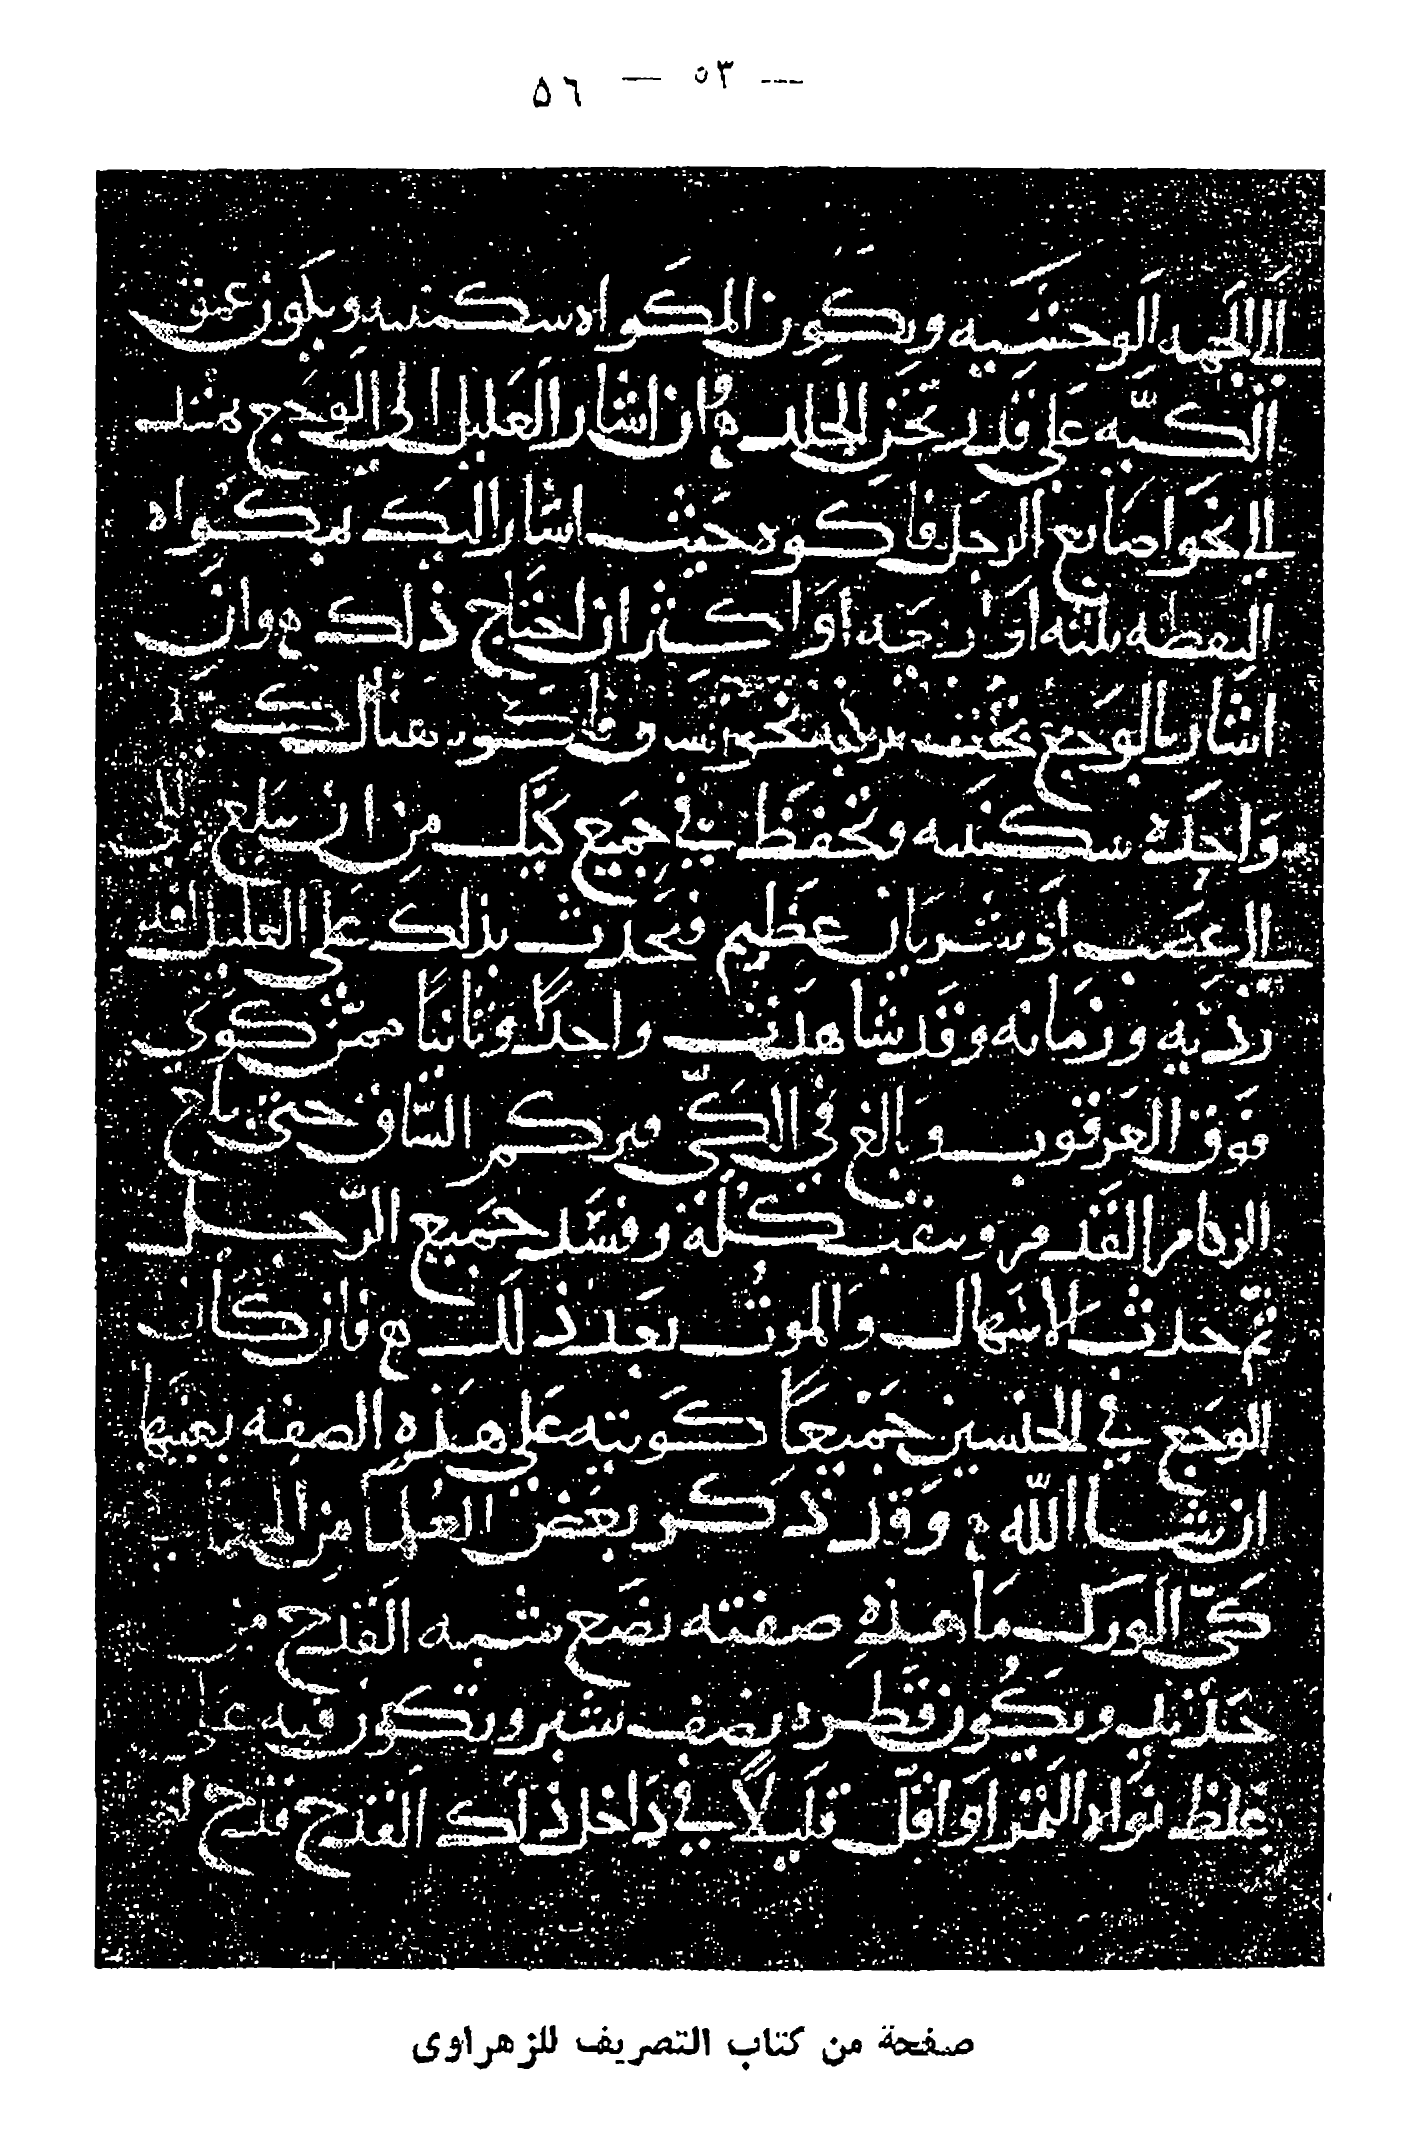 — ٥٣ — ٥٦
الى الجهه الوحشيه ويكون المكواه سكينيه ويكون عمق
الكيّه على قدر ثخن الجلد ه وان اشار العليل الى الوجع هند
الى نحو اصابع الرجل فاكوه حيث اشار اليك بمكواه
النقطه ثلثه او اربعه او اكثر ان احتاج ذلك ه وان
اشار بالوجع تحت الركبه نحو
واحده سكينيه وتحفظ في جميع كيّك من ان تبلغ
الى عصب او شريان عظيم فيحدث بذلك على العليل افه
رديه وزمانه وقد شاهدت واحداً وثانياً ممن كوى
فوق العرقوب وبالغ في الكيّ فتركم السّاق حتى بلغ
الورم القدم وتثقبت كله وفسد جميع الرّجل
ثم حدث الاسهال والموت بعد ذلك ه فان كان
الوجع في الجنبين جميعاً كويته على هذه الصفه بعينها
ان شا الله ه وقد ذكر بعض العلما من الحكما
كيّ الورك ما هذه صفته تصنع شبه القدح من
حديد ويكون قطره نصف شبر وتكون فيه على
غلظ نواه التمر او اقلّ قليلاً في داخل ذلك القدح قدح اخر
صفحة من كتاب التصريف للزهراوى